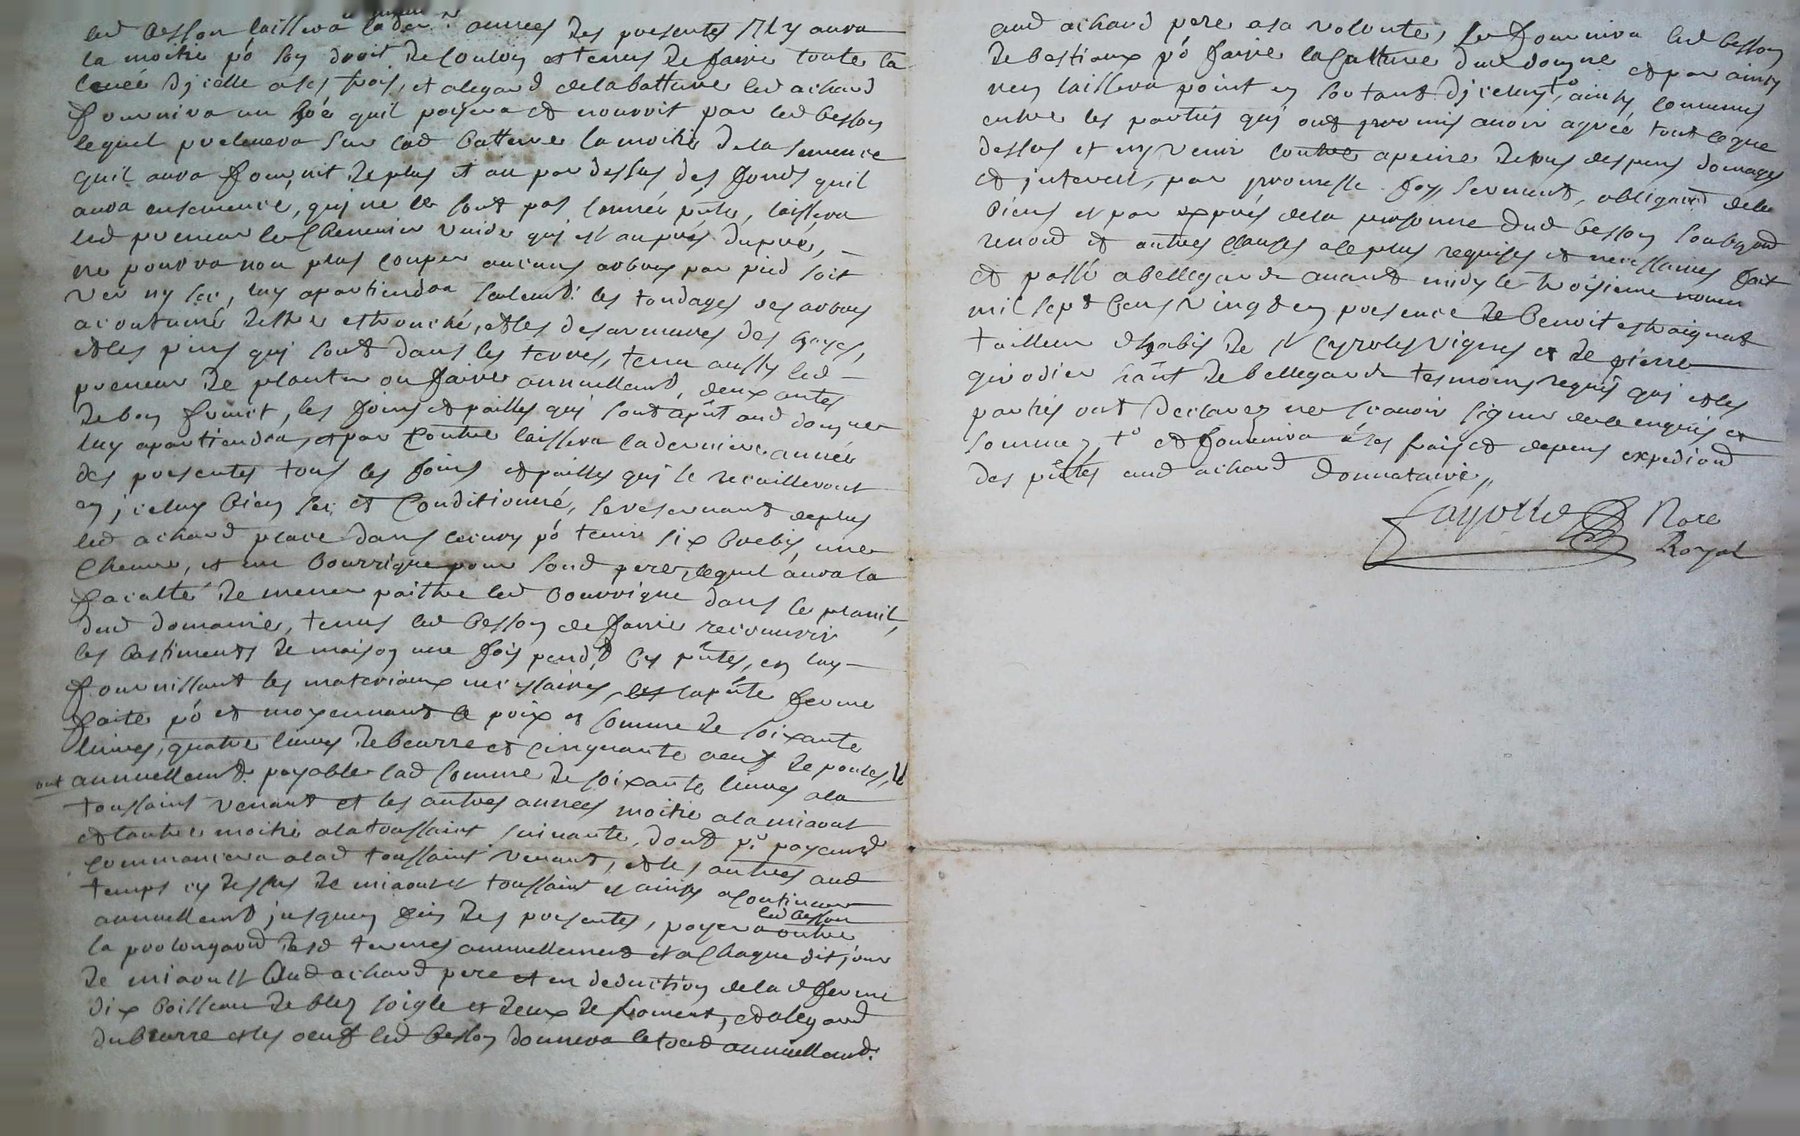 led besson laissera la der. annees des presentes Il y aura
la moitie po son droit de coulon et tenus de faire toute la
levée d icelle a ses frais, et alegard de la batture led achard
fournira un qui payera et nourrit par led besson
lequel prelevera sur lad batture la moitie de la semence
quil aura fournit de plus et au par dessus des fonds quil
aura ensemencé, qui ne le sont pas l'année pnte, laissera
led preneur le chenevier vuide qui est au pres du pré,
ne pourra non plus couper aucuns arbres par pied soit
ver ny sec, luy apartiendra seulemt. les tondages des arbres
acoutumé destre etronché, et les desarmures des hayes,
et les pins qui sont dans les terres, tenu aussy led
preneur de planter ou faire annuellemt, deux antes
de bon fruict, les foins et pailles qui sont apnt aud domyne
luy apartiendra, et par contre laissera la derniere année
des presentes tous les foins et pailles qui se recailleront
en j celuy bien sec et conditionné, se reservant de plus
led achard place dans lecury po tenir six brebis, une
chevre, et une bourrique pour soud pere, lequel aura la
faculté de mener paitre led bourrique dans le
dud domaine, tenus led besson de faire recouvrir
les bastiments de maison une fois pendt les pntes, en luy
fournissant les materiaux necessaires, la pnte ferme
faite po et moyennant le prix et somme de soixante
livres, quatre livres de beurre et cinquante oeufs de poules,
annuellemt. payable lad somme de soixante livres a la
toussaint venant et les autres annees moitie a la miaout
et lautre moitie a la toussaint suivante, dont pr payemt
commancera a lad toussaint venant, et les autres aud
temps cy dessus de miaoust et toussaint et ainsy a continuer
annuellemt jusquen fin des presentes, payera outre
led besson
la prolongaond desd termes annuellement et a chaque dit jour
de miaoust aud achard pere et en deduction de la d ferme
dix boisseau de bled soigle et deux de froment, et alegard
du beurre et les oeufs led besson donnera le tout annuellemt.
aud achard pere a sa volonté, se fournira led besson
de bestiaux po faire la culture dud domyne et par ainsy
nen laissera point en sortant d j celuy, ainsy convenus
entre les parties qui ont promis avoir agréé tout ce que
dessus et ny venir contre a peine de tous despens domages
et interest, par promesse foy serment, obligaond de
biens et par exprés de la personne dud besson soubzond
renond et autres clauses a ce plus requises et necessaires fait
et passé a bellegarde avant midy le troisieme
mil sept cens vingt en presence de Benoit
tailleur d habis de St Cyr les vignes et de pierre
girodier hant de bellegarde tesmoins requis qui et les
parties ont declarez ne scavoir signer de ce enquis et
sommez to et fournira a ses frais et depens expediond
des pntes aud achard donnataire,
Fayolle Nore
Royal